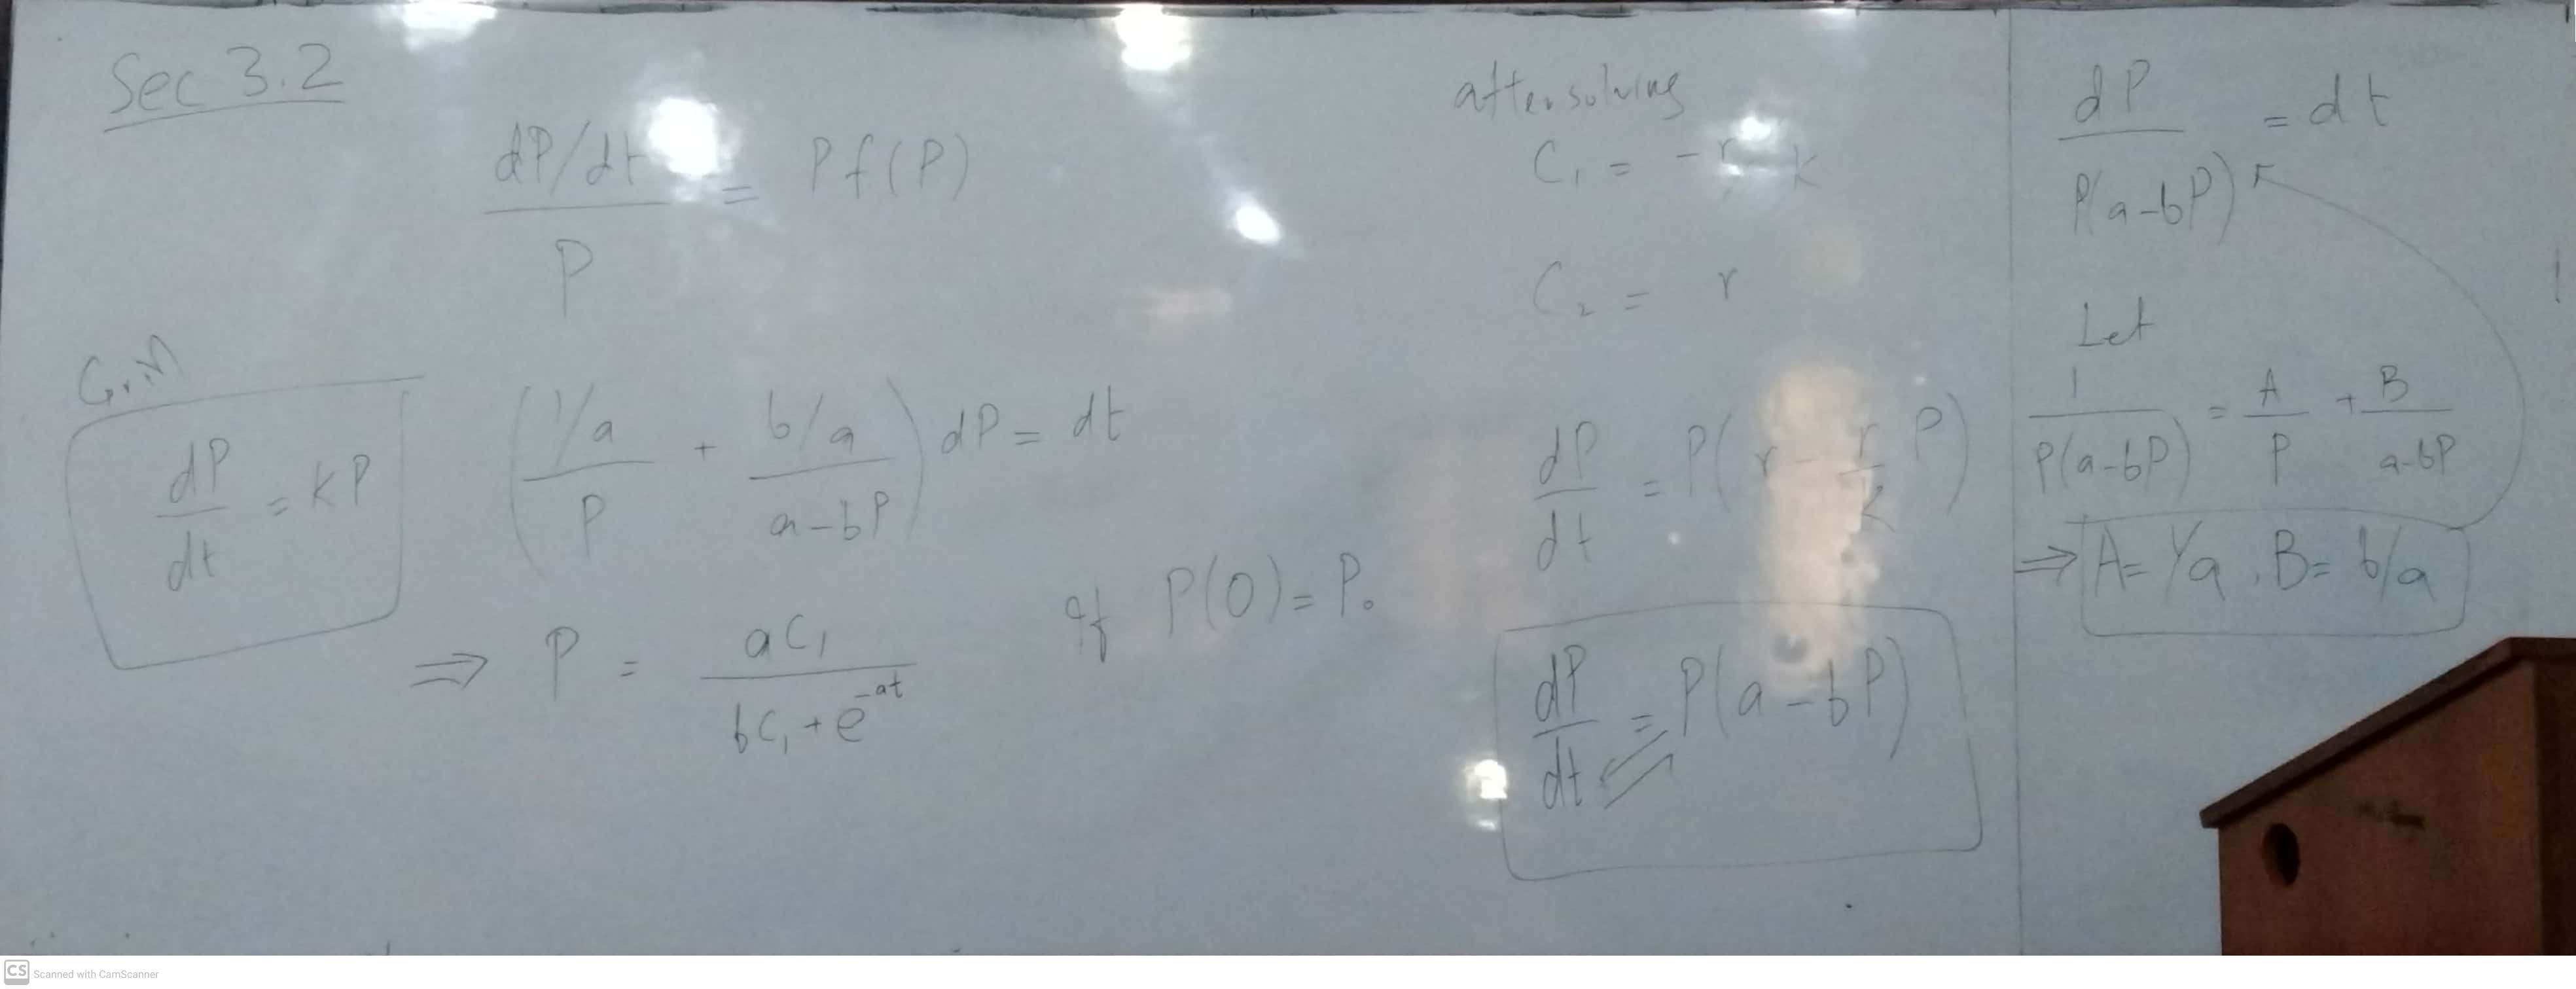 Sec 3.2
dP/dt / P = P f(P)
dP/dt = kP
(1/a / P + b/a / a-bP) dP = dt
⇒ P = aC₁ / bC₁ + e^-at
If P(0) = P₀
after solving
C₁ = - r/k
C₂ = r
dP/dt = P(r - r/k P)
dP/dt = P(a - bP)
dP / P(a-bP) = dt
Let
1 / P(a-bP) = A/P + B / a-bP
⇒ A = 1/a , B = b/a
CS Scanned with CamScanner